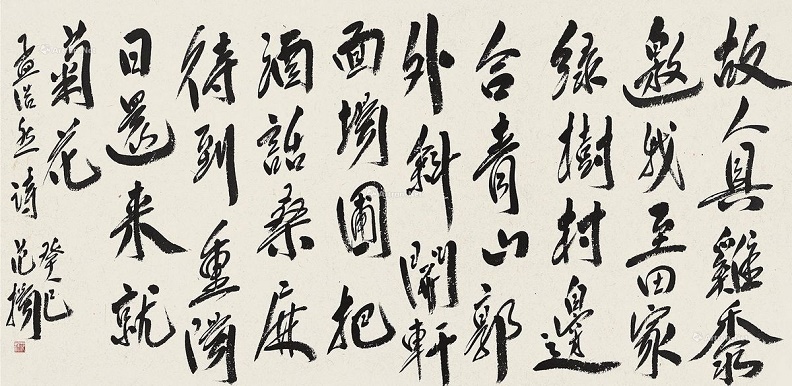 故人具雞黍
邀我至田家
綠樹村邊
合青山郭
外斜開軒
面場圃把
酒話桑麻
待到重陽
日還来就
菊花
孟浩然詩
癸巳
范揚